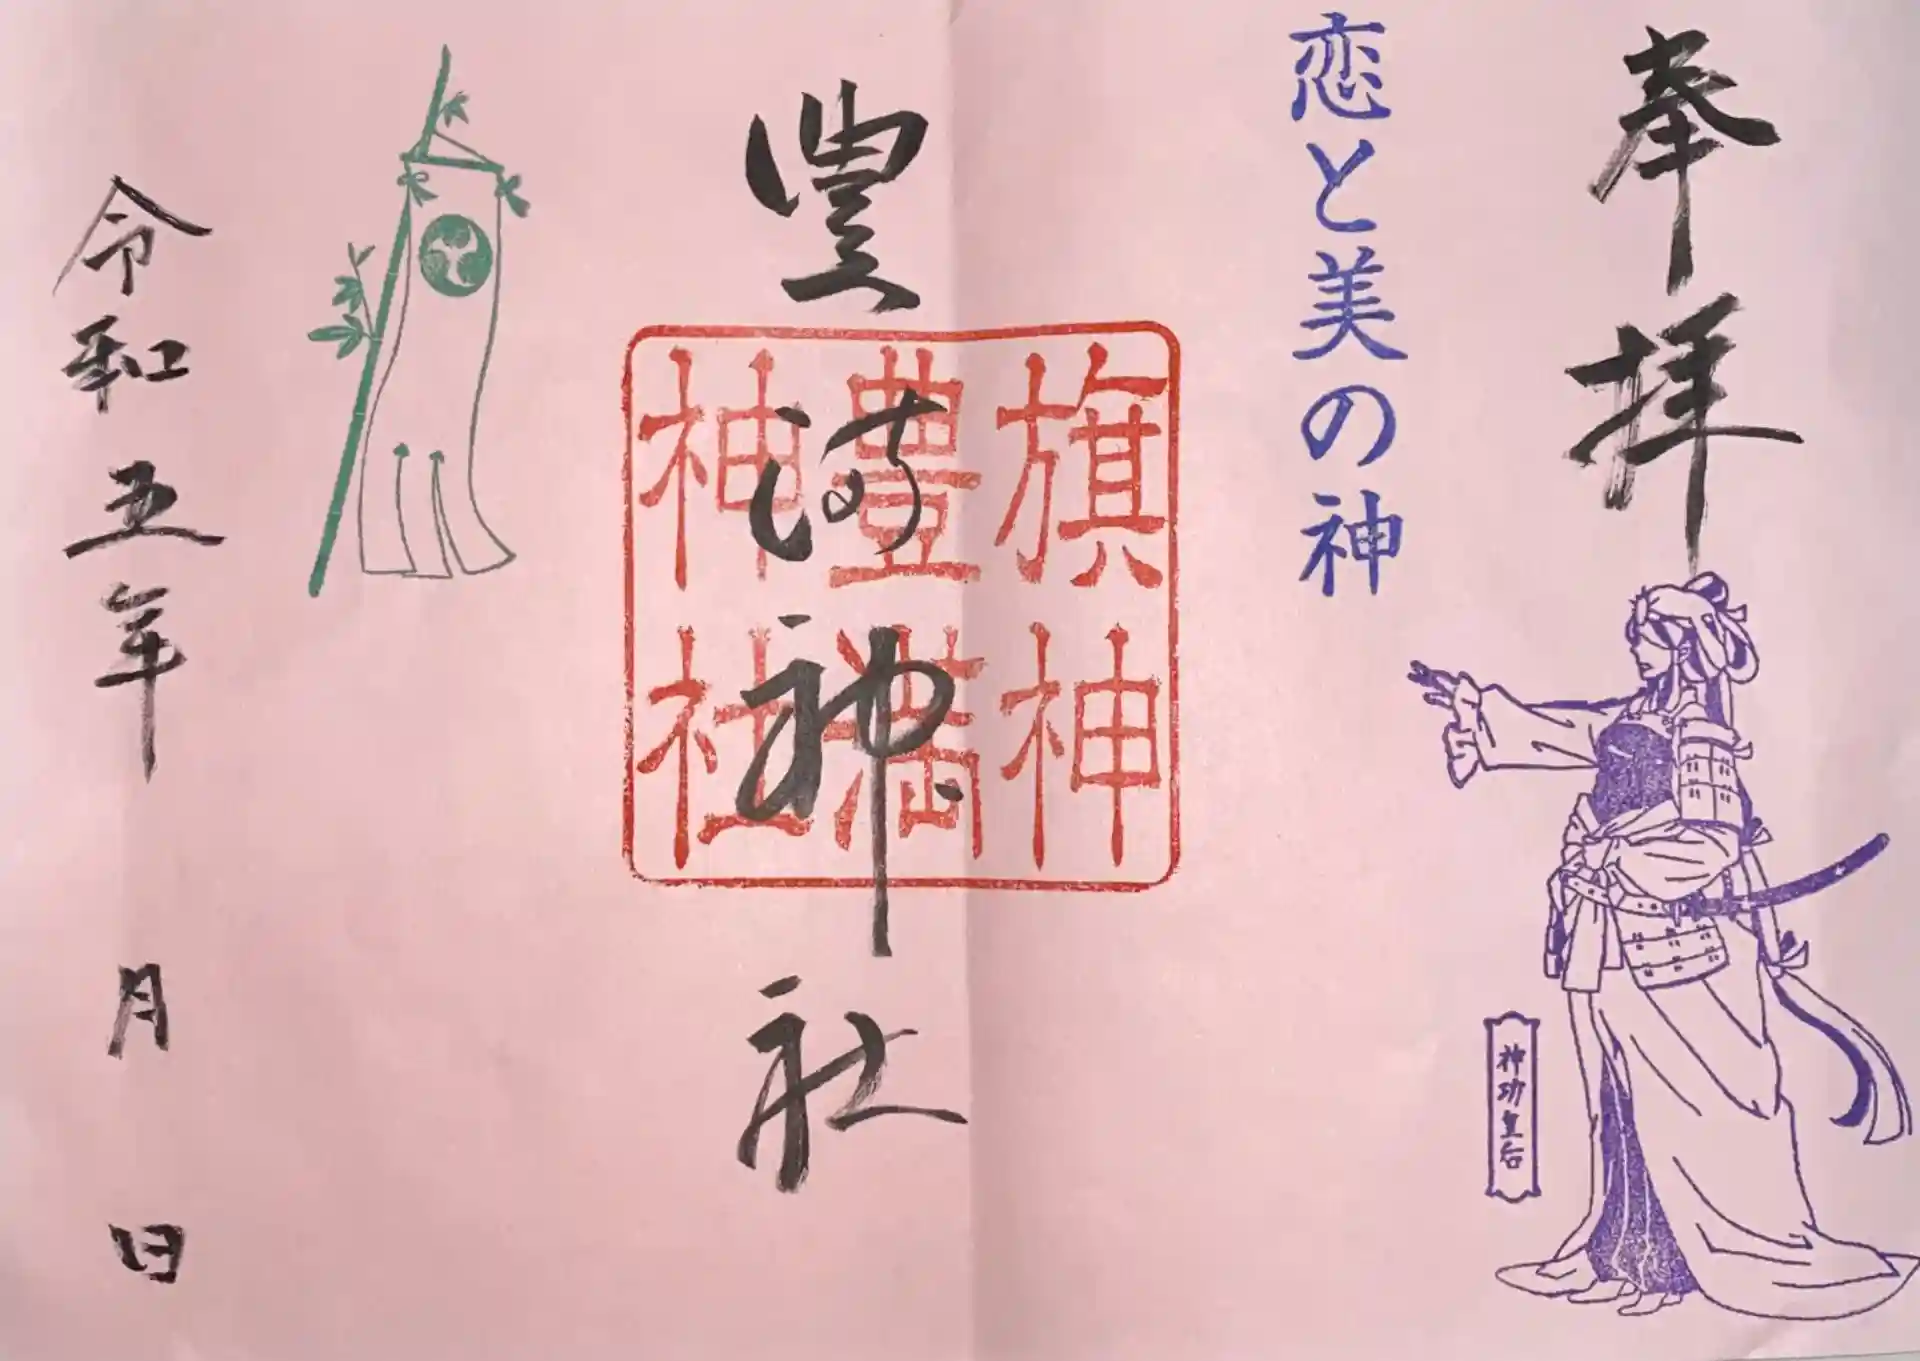 奉拝
恋と美の神
神功皇后
旗神
豊満
神社
豊満神社
令和五年 月 日